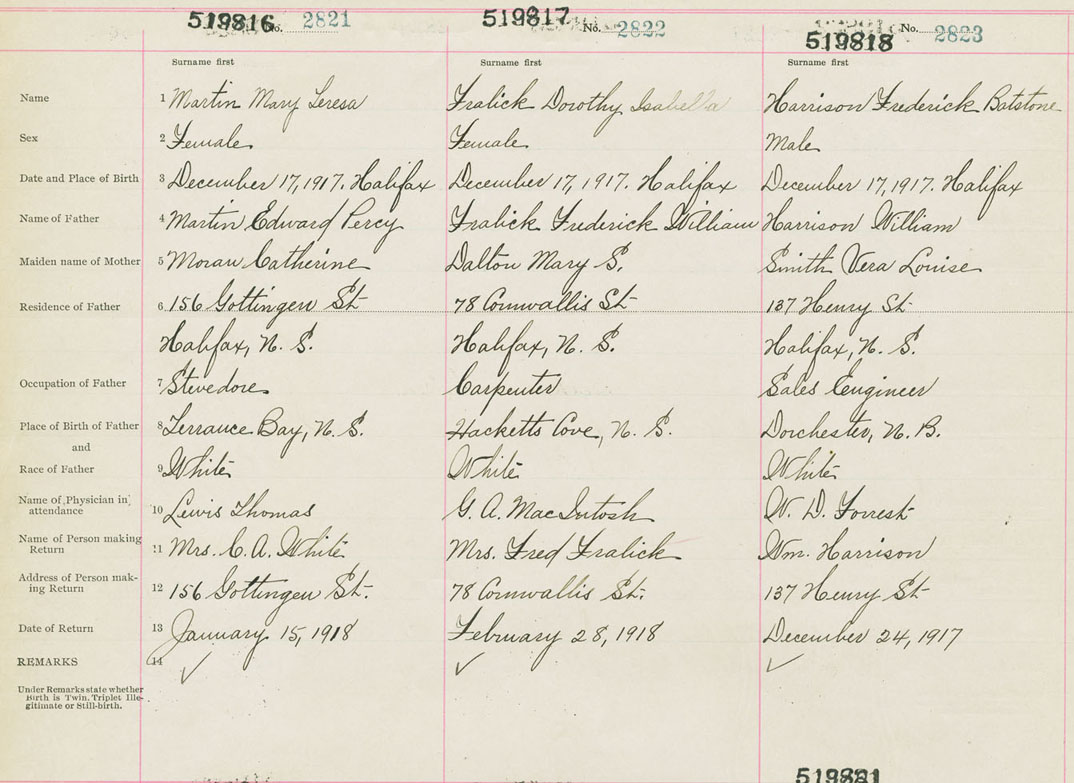 519816 No. 2821 519817 No. 2822 519818 No. 2823
Surname first Surname first Surname first
Name 1 Martin Mary Teresa Fralick Dorothy Isabella Harrison Frederick Batstone
Sex 2 Female Female Male
Date and Place of Birth 3 December 17, 1917. Halifax December 17, 1917. Halifax December 17, 1917. Halifax
Name of Father 4 Martin Edward Percy Fralick Frederick William Harrison William
Maiden name of Mother 5 Moran Catherine Dalton Mary S. Smith Vera Louise
Residence of Father 6 156 Gottingen St 78 Cornwallis St 137 Henry St
Halifax, N. S. Halifax, N. S. Halifax, N. S.
Occupation of Father 7 Stevedore Carpenter Sales Engineer
Place of Birth of Father 8 Terrance Bay, N. S. Hacketts Cove, N. S. Dorchester, N. B.
and
Race of Father 9 White White White
Name of Physician in attendance 10 Lewis Thomas G. A. MacIntosh W. D. Forrest
Name of Person making Return 11 Mrs. C. A. White Mrs. Fred Fralick Wm. Harrison
Address of Person mak-
ing Return 12 156 Gottingen St. 78 Cornwallis St. 137 Henry St
Date of Return 13 January 15, 1918 February 28, 1918 December 24, 1917
REMARKS 14
Under Remarks state whether
Birth is Twin, Triplet Ille-
gitimate or Still-birth.